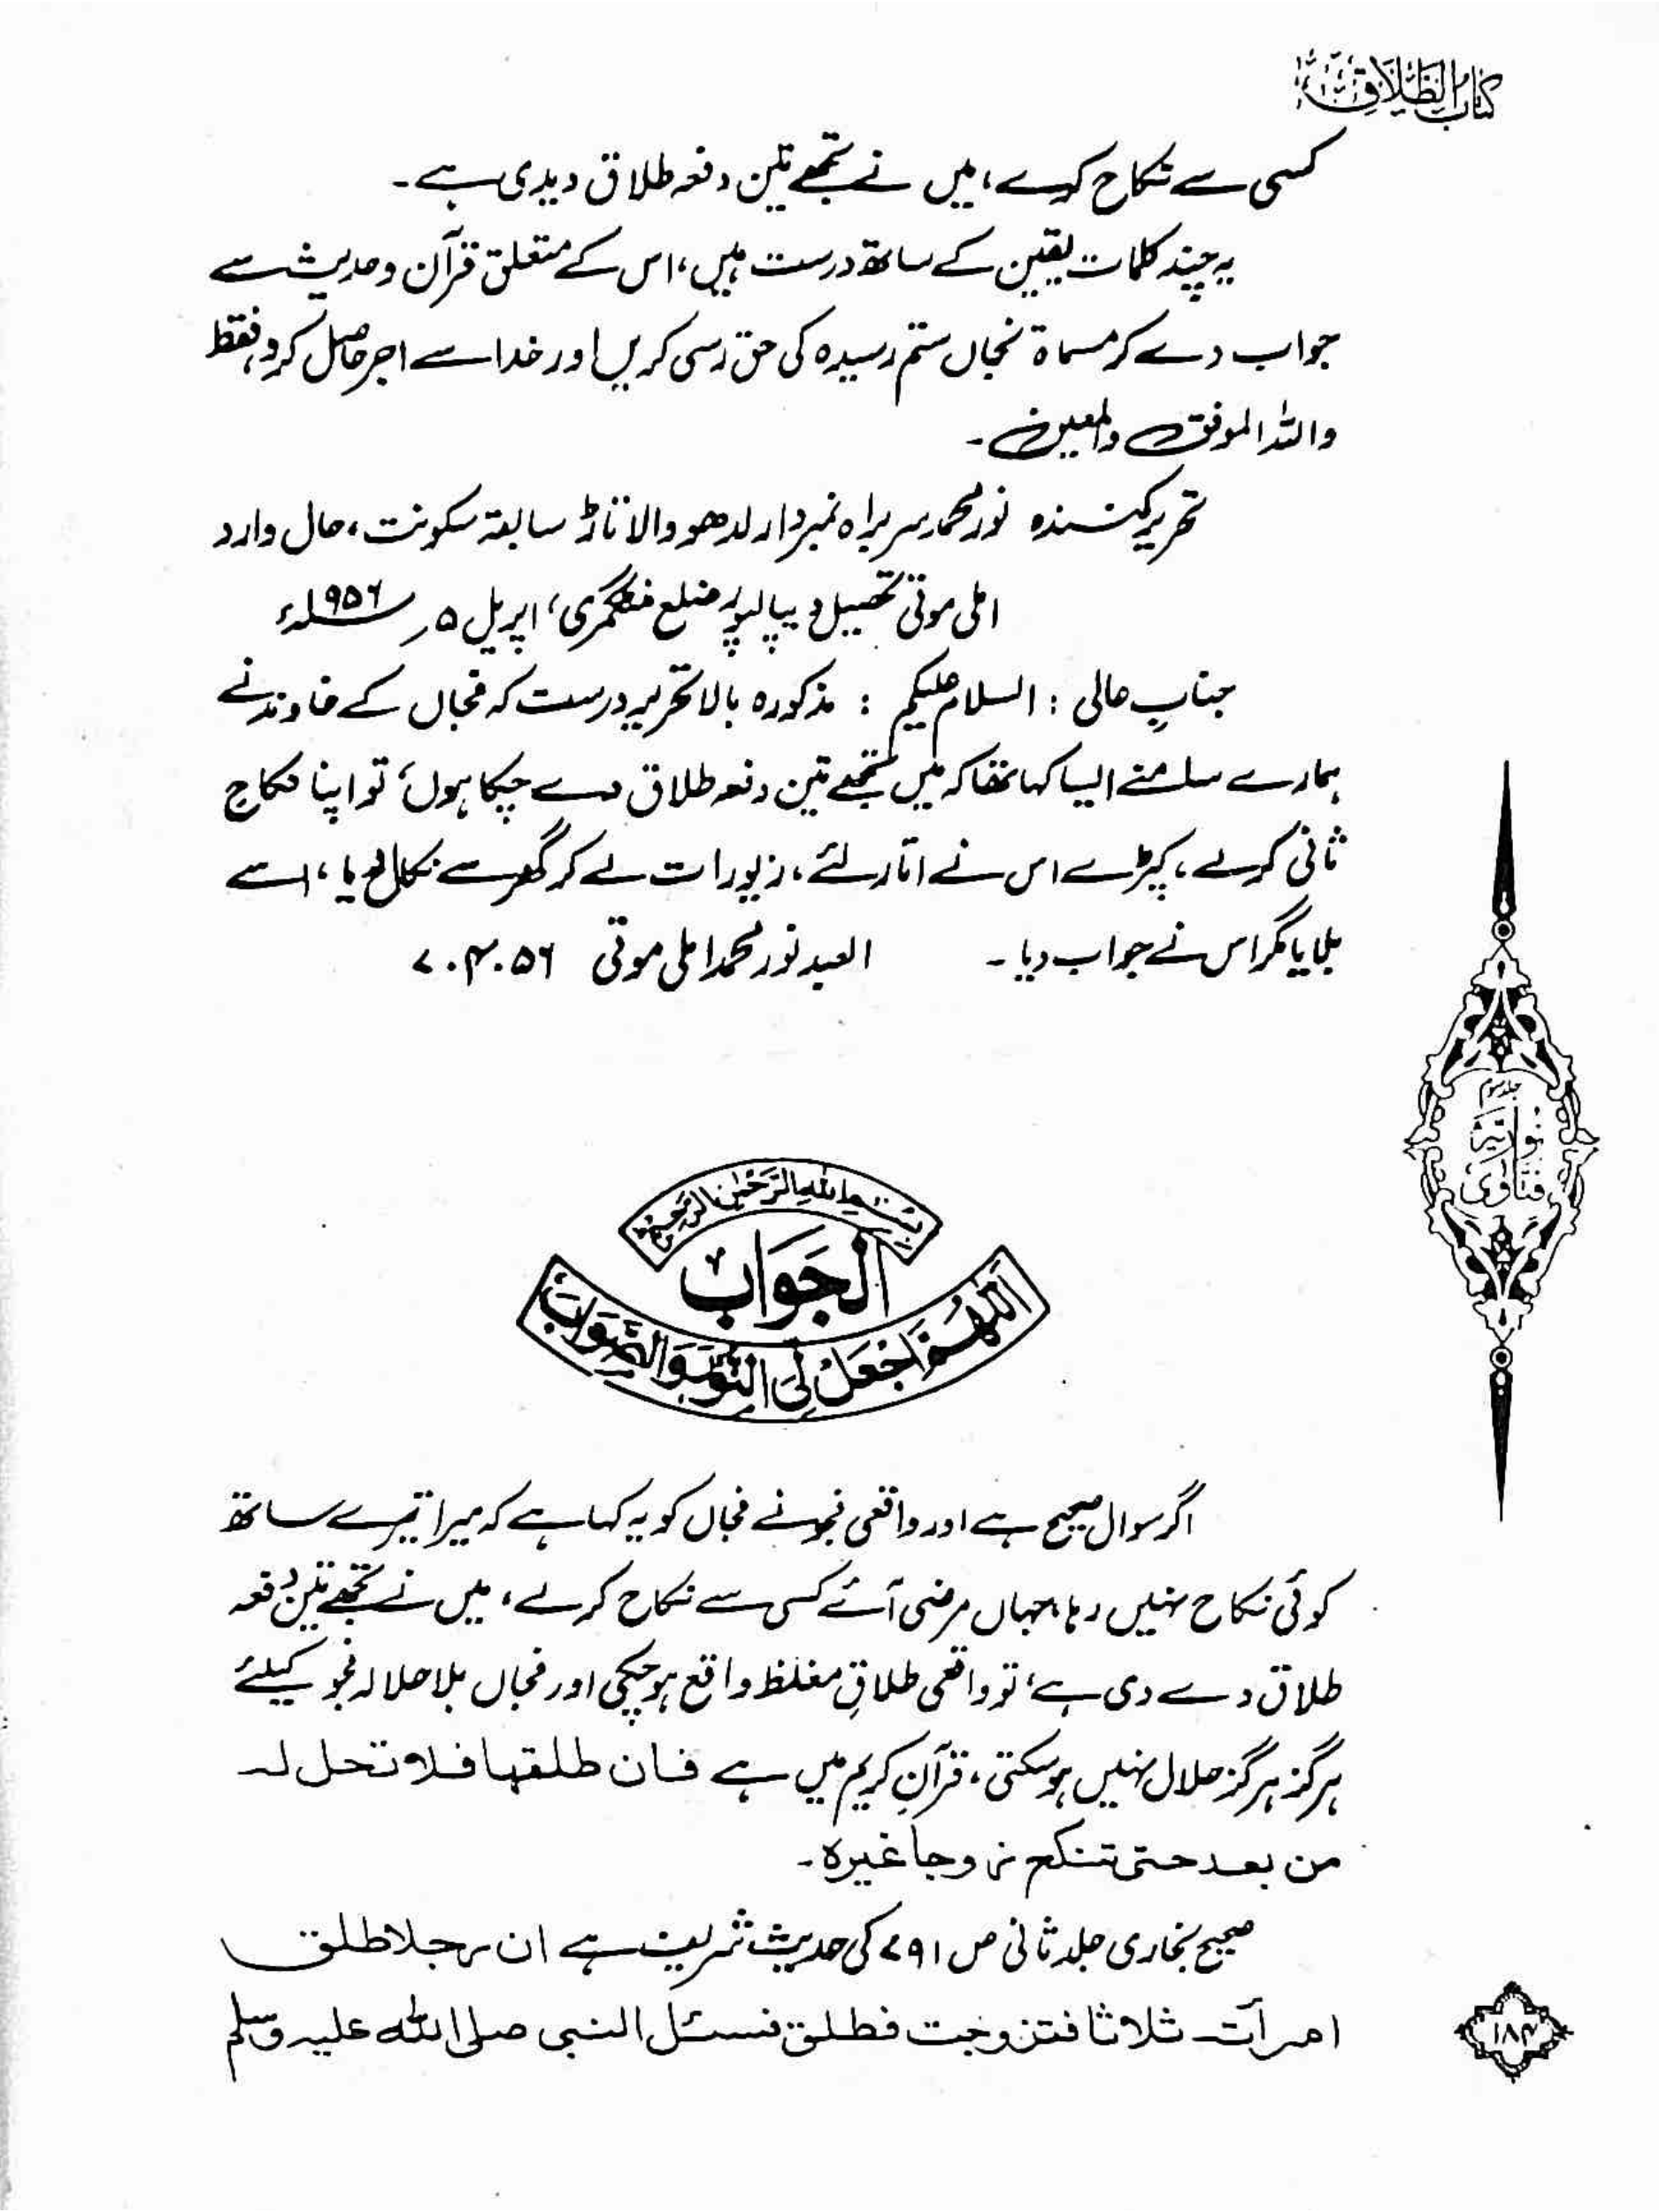 کتاب الطلاق
کسی سے نکاح کرے، میں نے تجھے تین دفعہ طلاق دیدی ہے۔
یہ چند کلمات یقین کے ساتھ درست ہیں، اس کے متعلق قرآن و حدیث سے
جواب دے کر مسماۃ نجاں ستم رسیدہ کی حق رسی کریں اور خدا سے اجر حاصل کرو، فقط
واللہ الموفق والمعین۔
تحریر کنندہ نور محمد سربراہ نمبردار لدھو والا تاڑ سابقہ سکونت، حال وارد
املی موتی تحصیل دیپالپور ضلع منٹگمری، اپریل ۵؍ ۱۹۵۶ء
جنابِ عالی : السلام علیکم : مذکورہ بالا تحریر درست کہ فجاں کے خاوند نے
ہمارے سامنے ایسا کہا تھا کہ میں تجھے تین دفعہ طلاق دے چکا ہوں، تو اپنا نکاحِ
ثانی کرلے، کپڑے اس نے اتار لئے، زیورات لے کر گھر سے نکال دیا، اسے
بلایا مگر اس نے جواب دیا ۔ العبد نور محمد املی موتی ۷.۴.۵۶
جلد سوم
فتاویٰ نوریہ
بسم اللہ الرحمٰن الرحیم
الجَوَابُ
اَللّٰهُمَّ اجْعَلْ لِیَ النُّوْرَ وَالصَّوَابَ
اگر سوال صحیح ہے اور واقعی فجو نے فجاں کو یہ کہا ہے کہ میرا تیرے ساتھ
کوئی نکاح نہیں رہا، جہاں مرضی آئے کسی سے نکاح کرلے، میں نے تجھے تین دفعہ
طلاق دے دی ہے، تو واقعی طلاقِ مغلظ واقع ہوچکی اور فجاں بلا حلالہ فجو کیلئے
ہرگز ہرگز حلال نہیں ہوسکتی، قرآنِ کریم میں ہے فان طلقها فلا تحل له
من بعد حتی تنکح زوجا غیرہ ۔
صحیح بخاری جلد ثانی ص ۷۹۱ کی حدیث شریف ہے ان رجلا طلق
امرأته ثلاثا فتزوجت فطلق فسئل النبی صلی اللہ علیہ وسلم
۱۸۴